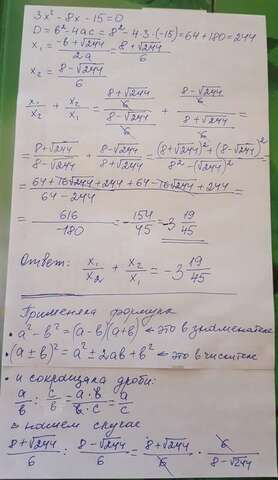 3x² - 8x - 15 = 0
D = b² - 4ac = 8² - 4·3·(-15) = 64 + 180 = 244
x₁ = (-b + √244)/(2a) = (8 + √244)/6
x₂ = (8 - √244)/6
x₁/x₂ + x₂/x₁ = ((8 + √244)/6)/((8 - √244)/6) + ((8 - √244)/6)/((8 + √244)/6) =
= (8 + √244)/(8 - √244) + (8 - √244)/(8 + √244) = ((8 + √244)² + (8 - √244)²)/(8² - (√244)²) =
= (64 + 16√244 + 244 + 64 - 16√244 + 244)/(64 - 244) =
= 616/-180 = -154/45 = -3 19/45
Ответ: x₁/x₂ + x₂/x₁ = -3 19/45
Применяла формулы
• a² - b² = (a - b)(a + b) ← это в знаменателе
• (a ± b)² = a² ± 2ab + b² ← это в числителе
• и сокращала дроби:
a/b : c/b = a·b/b·c = a/c
в нашем случае
(8 + √244)/6 : (8 - √244)/6 = (8 + √244)/6 · 6/(8 - √244)